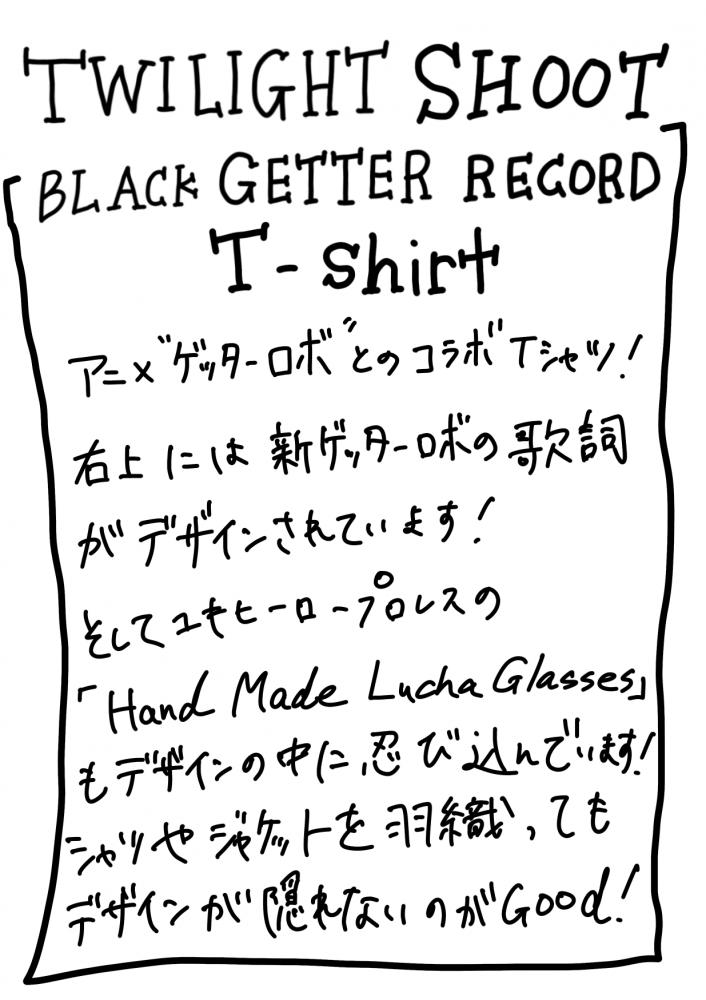 TWILIGHT SHOOT
BLACK GETTER RECORD
T-shirt
アニメ"ゲッターロボ"とのコラボTシャツ!
右上には新ゲッターロボの歌詞
がデザインされています!
そしてユキヒーロープロレスの
「Hand Made Lucha Glasses」
もデザインの中に忍び込んでいます!
シャツやジャケットを羽織っても
デザインが隠れないのがGood!